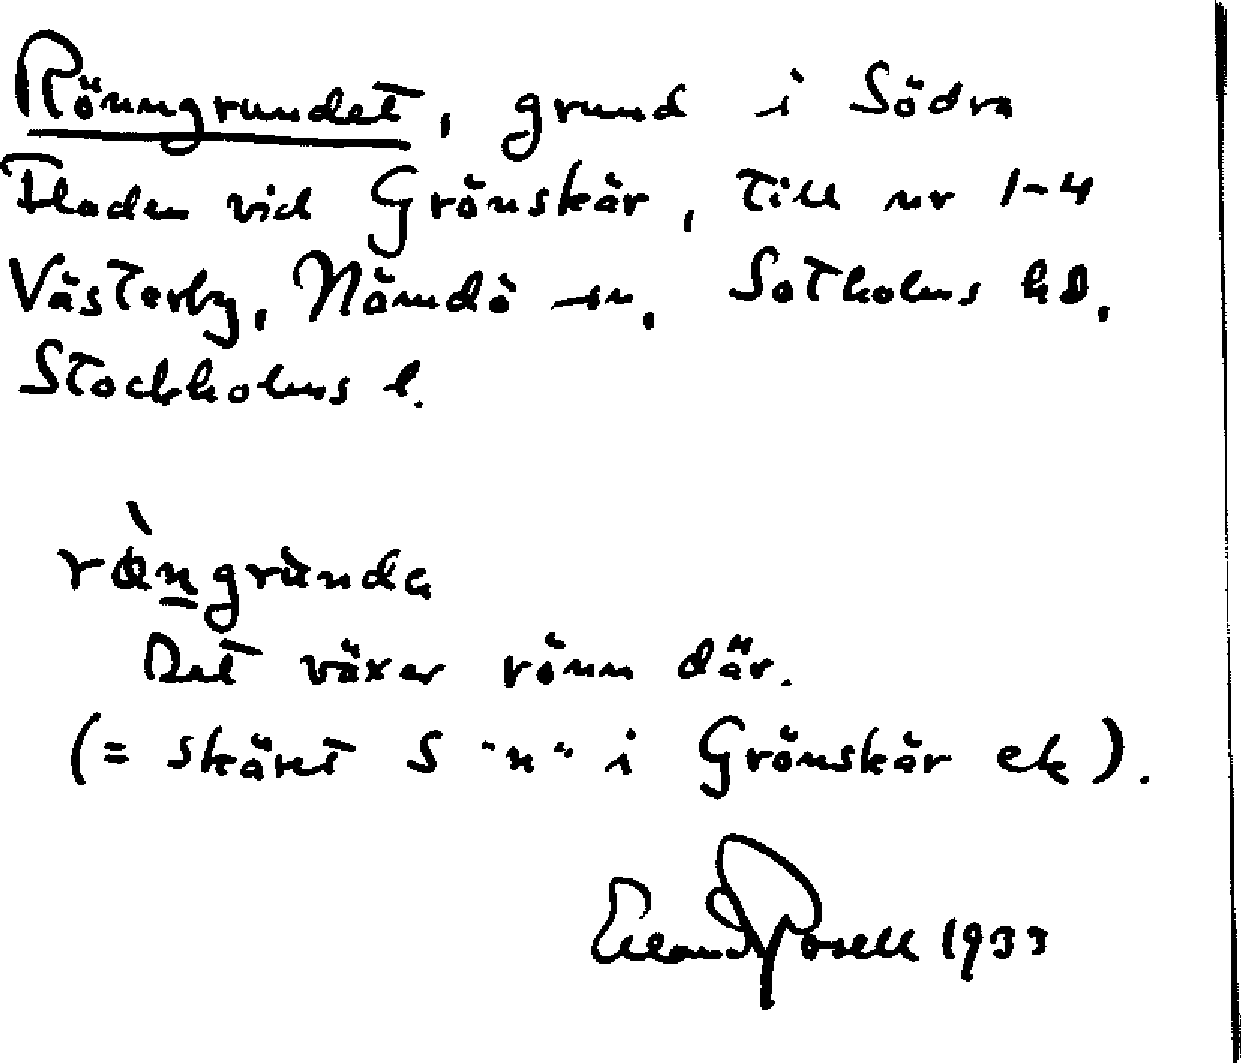 Rönngrundet, grund i Södra
Fladen vid Grönskär, till nr 1-4
Västerby, Nämdö sn, Sotholms hd,
Stockholms l.
rö̀ngrùnda
Det växer rönn där.
(= skäret S "n" i Grönskär ek).
Erland Rosell 1933